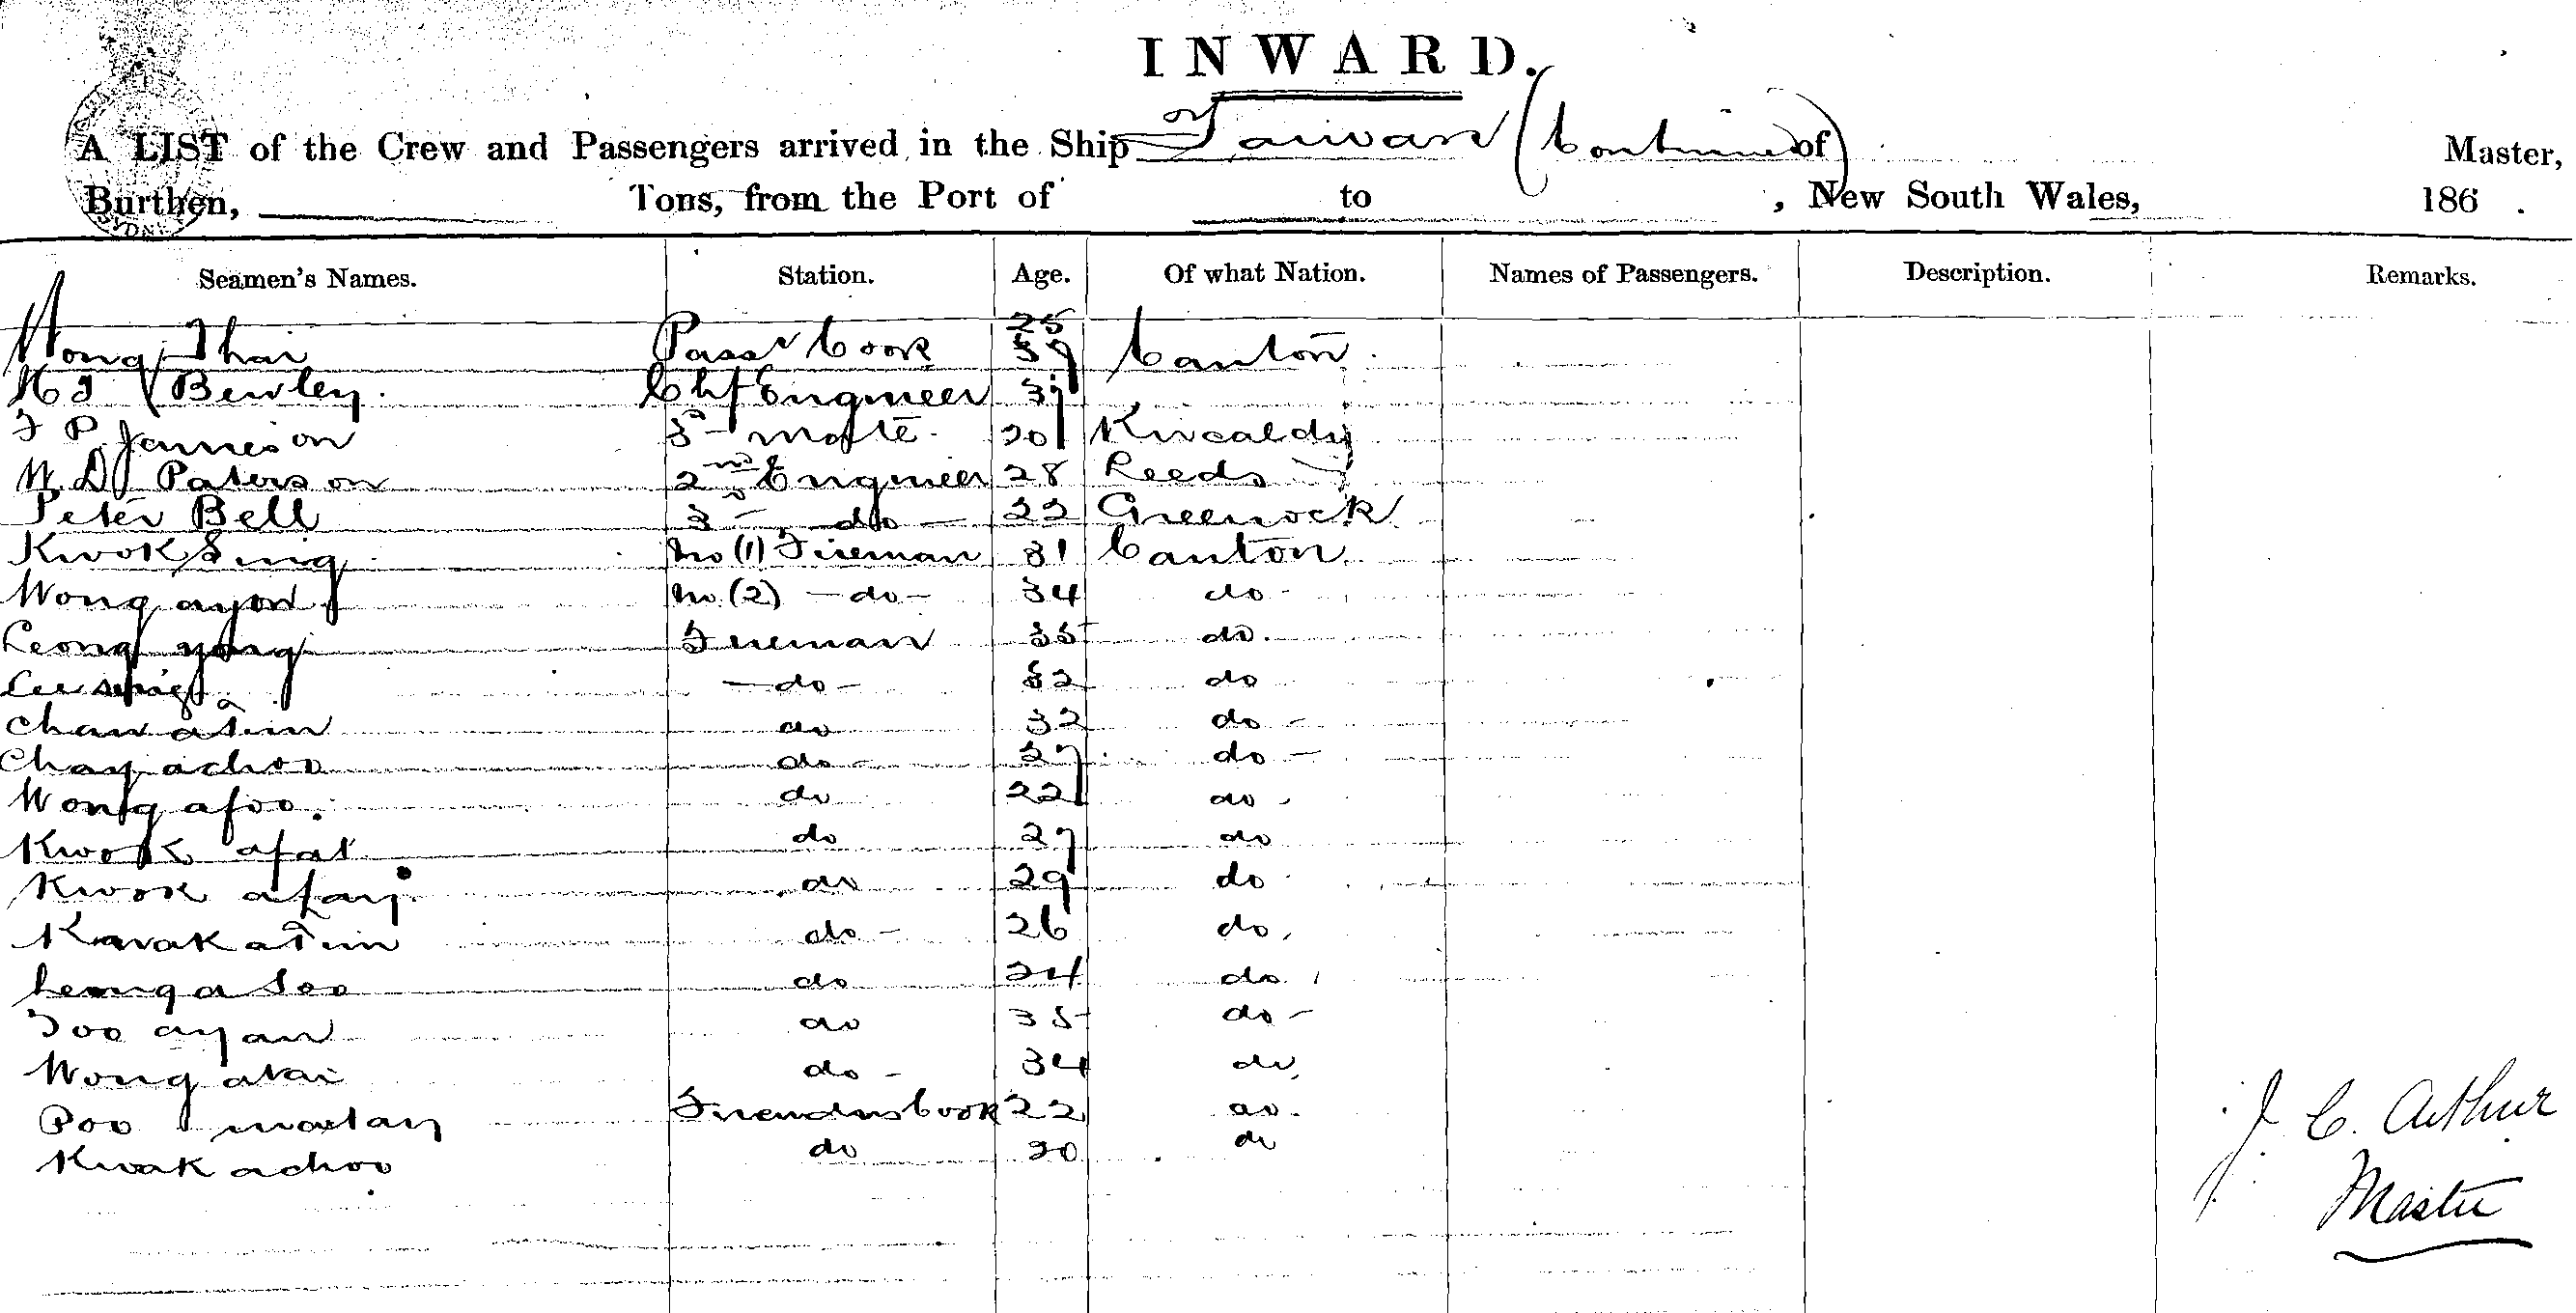 INWARD.
A LIST of the Crew and Passengers arrived in the Ship Taiwan (Continued) of Master,
Burthen, Tons, from the Port of to , New South Wales, 186 .
Seamen's Names. Station. Age. Of what Nation. Names of Passengers. Description. Remarks.
25
Hong Thai Passr Cook 39 Canton
Bewley Chf Engineer 37
J P Jamieson 3rd mate 20 Kircaldy
W. D Paterson 2nd Engineer 28 Leeds
Peter Bell 3 - do - 22 Greenock
Kwok Sing No (1) Fireman 31 Canton
Wong ayow No. (2) - do - 34 do
Leong yong Fireman 35 do.
Lee - do - 32 do
Chaw atim do 32 do -
Chay achoo do - 27 do -
Wong afoo. do 22 do
Kwok afat do 27 do
Kwok afay do 29 do
Kwak atim do - 26 do
Leong a soo do 24 do
Foo ayan do 35 do -
Wong akai do - 34 do
Poo matay Firemans Cook 22 do.
Kwak achoo do 20 do
J. C. Arthur
Master